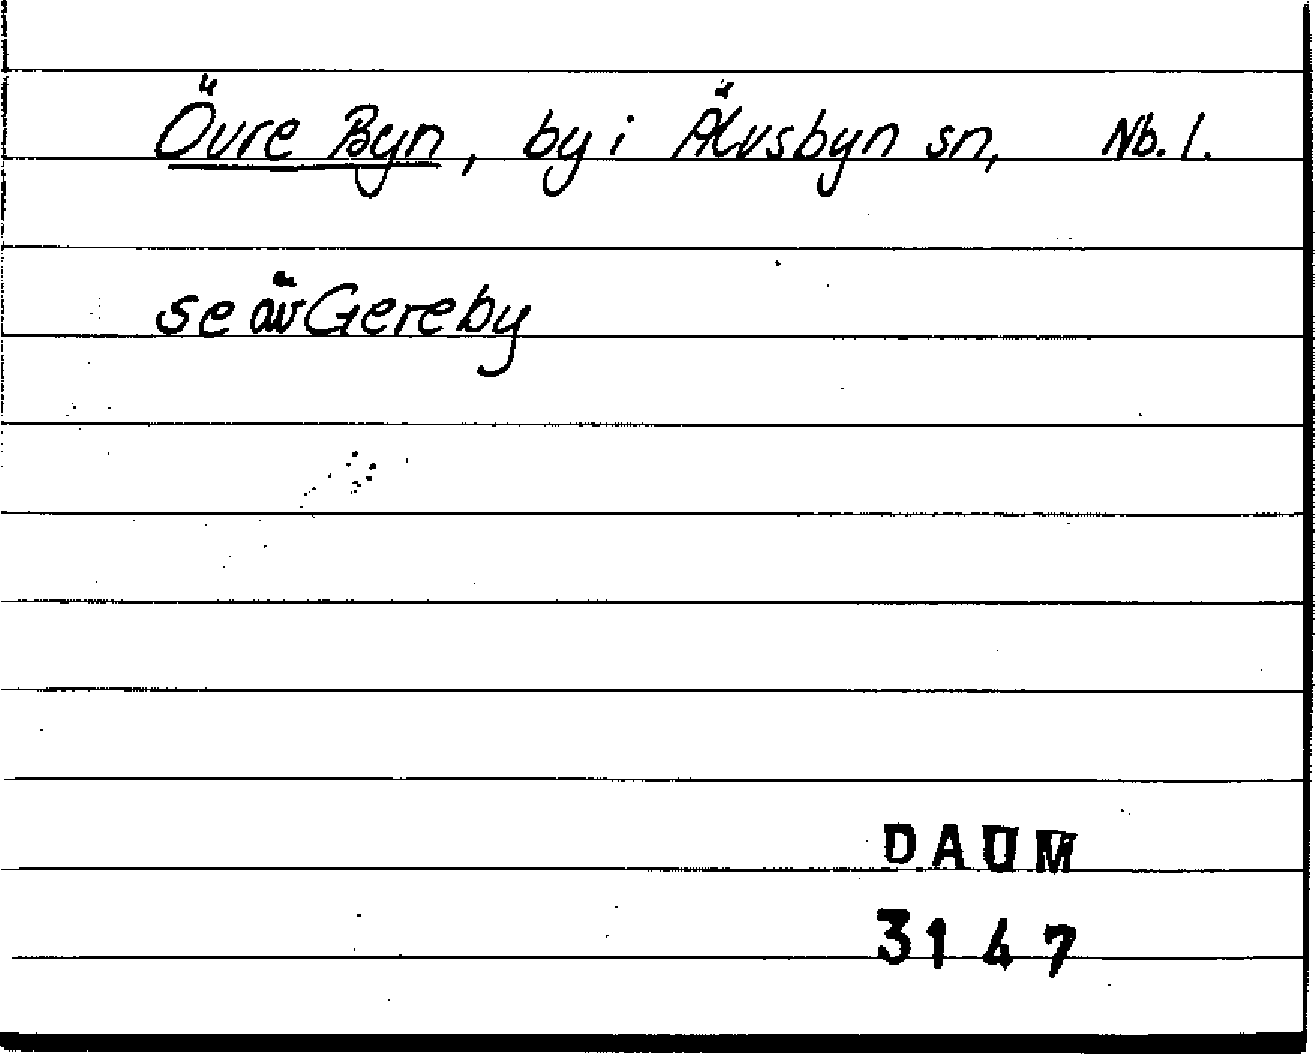 Övre Byn, by i Älvsbyn sn, Nb. l.
se ävGereby
DAUM
3147